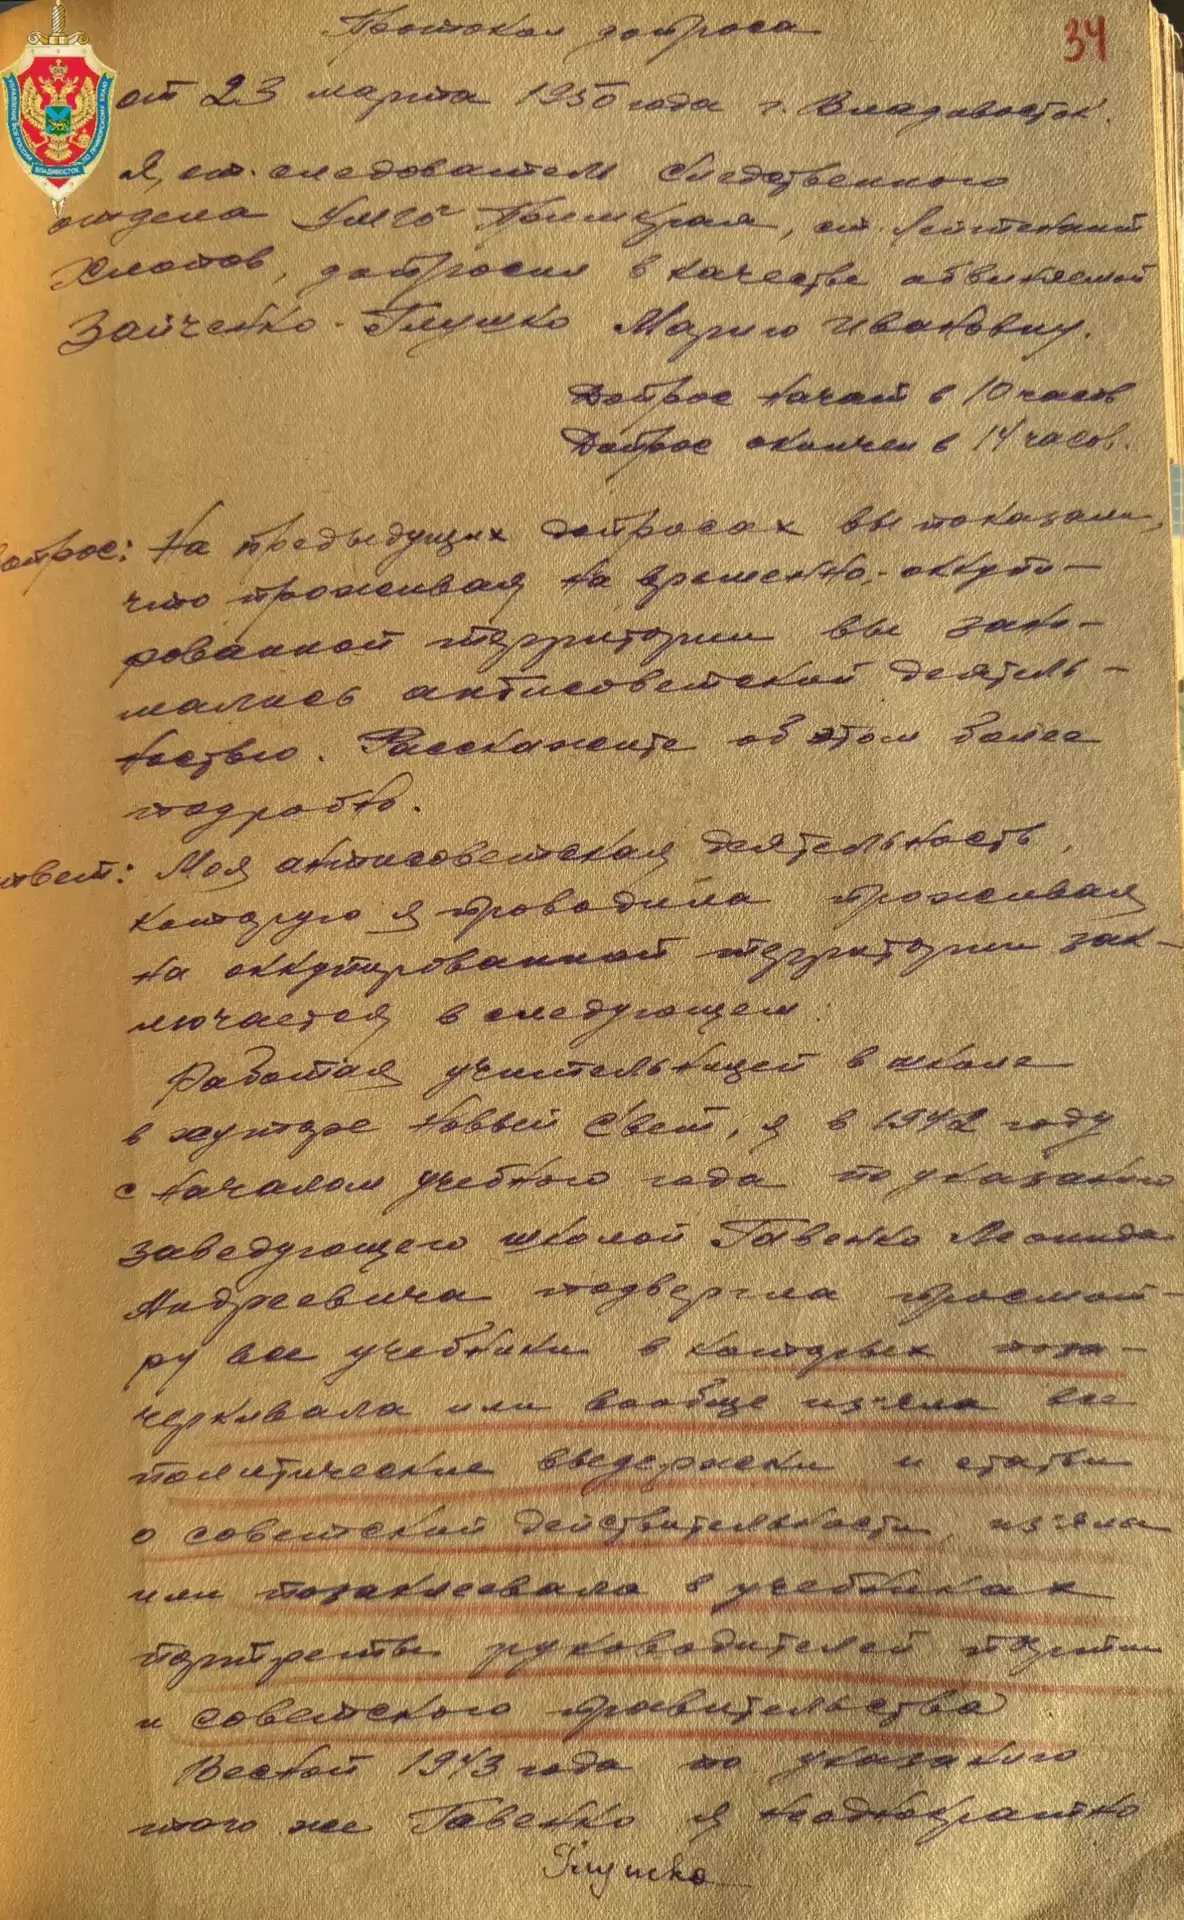 34
Протокол допроса
от 23 марта 1950 года г. Владивосток.
Я, ст. следователь Следственного
отдела УМГБ Примкрая, ст. лейтенант
Хлопов, допросил в качестве обвиняемой
Зайченко-Глушко Марию Ивановну.
Допрос начат в 10 часов
Допрос окончен в 14 часов.
вопрос: На предыдущих допросах вы показали,
что проживая на временно-оккупи-
рованной территории вы зани-
мались антисоветской деятель-
ностью. Расскажите об этом более
подробно.
ответ: Моя антисоветская деятельность,
которую я проводила проживая
на оккупированной территории зак-
лючается в следующем:
Работая учительницей в школе
в хуторе Новый Свет, я в 1942 году
с началом учебного года по указанию
заведующего школой Гавенко Леонида
Андреевича подвергла просмот-
ру все учебники в которых поза-
черкивала или вообще из'яла все
политические выдержки и статьи
о советской действительности, из'яла
или позаклеивала в учебниках
портреты руководителей партии
и советского правительства
Весной 1943 года по указанию
того же Гавенко я неоднократно
Глушко
УПРАВЛЕНИЕ ФСБ РОССИИ ПО ПРИМОРСКОМУ КРАЮ
ВЛАДИВОСТОК